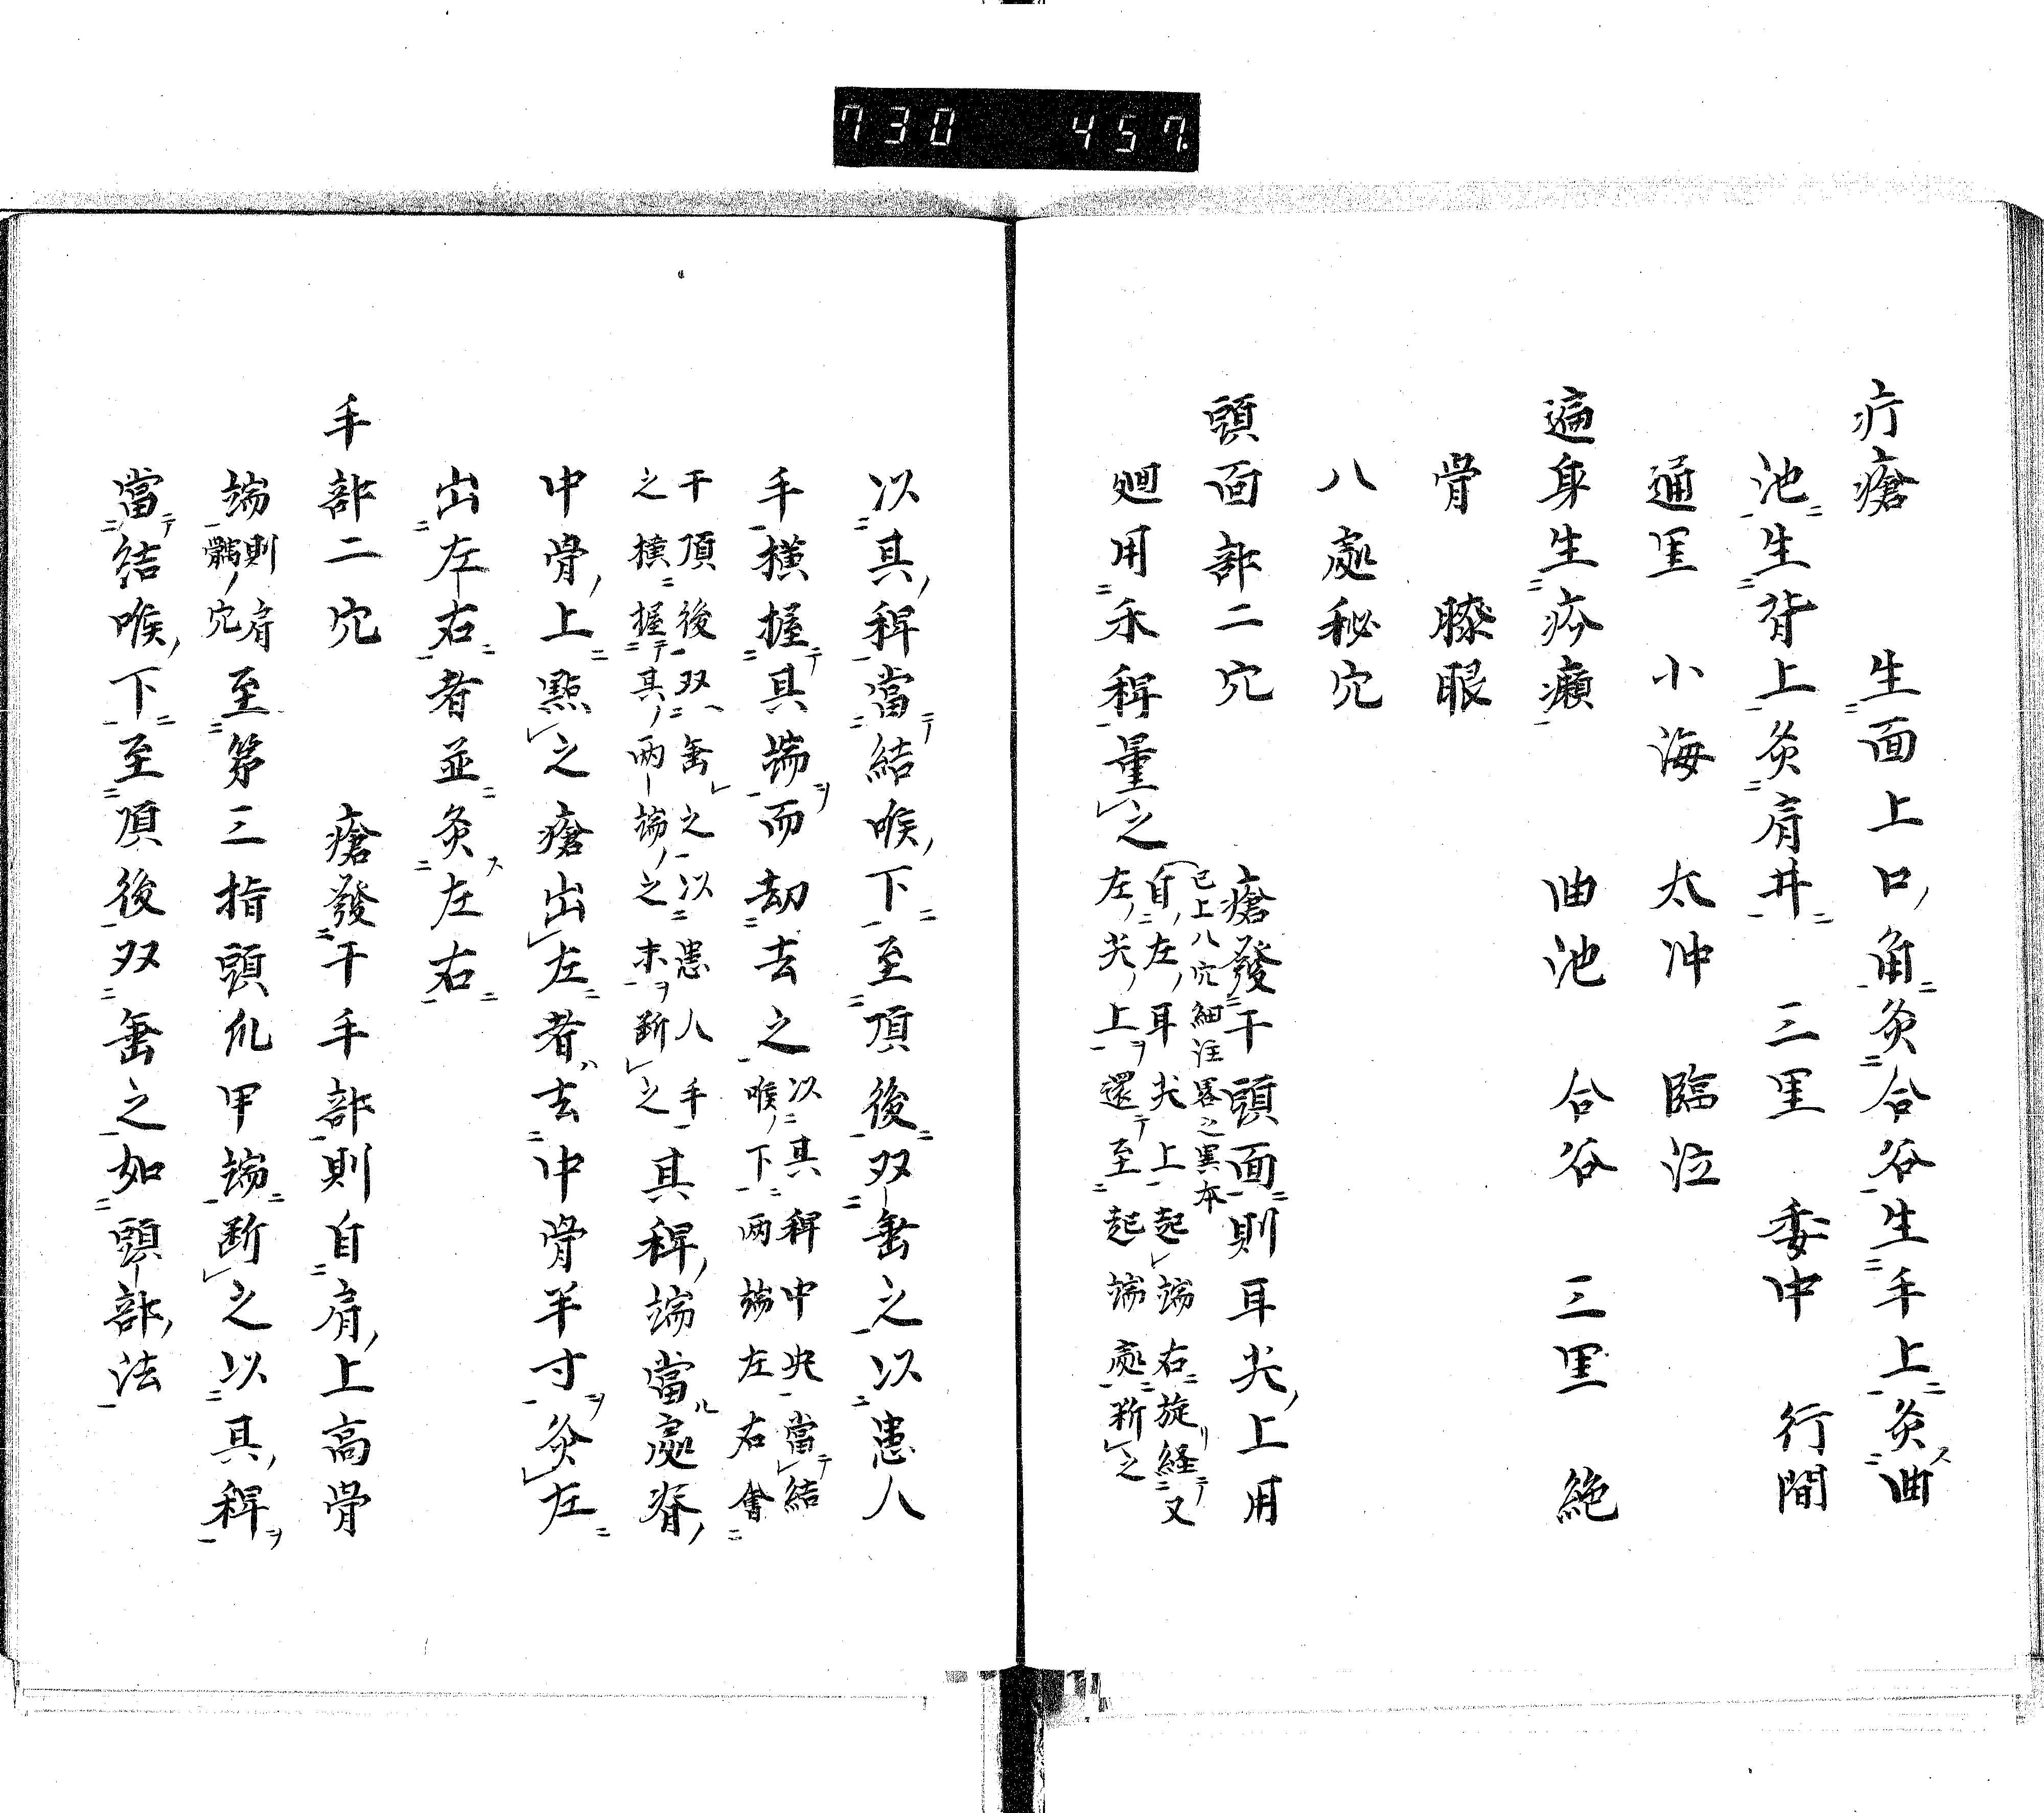 730 457.
疔瘡 生面上口角灸合谷生手上灸曲
池生背上灸肩井 三里 委中 行間
通里 小海 太冲 臨泣
遍身生疥癩 曲池 合谷 三里 絶
骨 膝眼
八處秘穴
頭面部二穴 瘡發于頭面則耳尖上用
已上八穴細注畧之異本
廻用禾稈量之
自左耳尖上起端右旋経又
左尖上還至起端處断之
以其稈當結喉下至項後双垂之以患人
手横握其端而劫去之
以其稈中央當結
喉下両端左右會
于項後双垂之以患人手
之横握其両端之末断之
其稈端當處脊
中骨上點之瘡出左者去中骨半寸灸左
出左右者並灸左右
手部二穴 瘡發于手部則自肩上高骨
端
則肩
髃穴
至第三指頭爪甲端断之以其稈
當結喉下至項後双垂之如頭部法